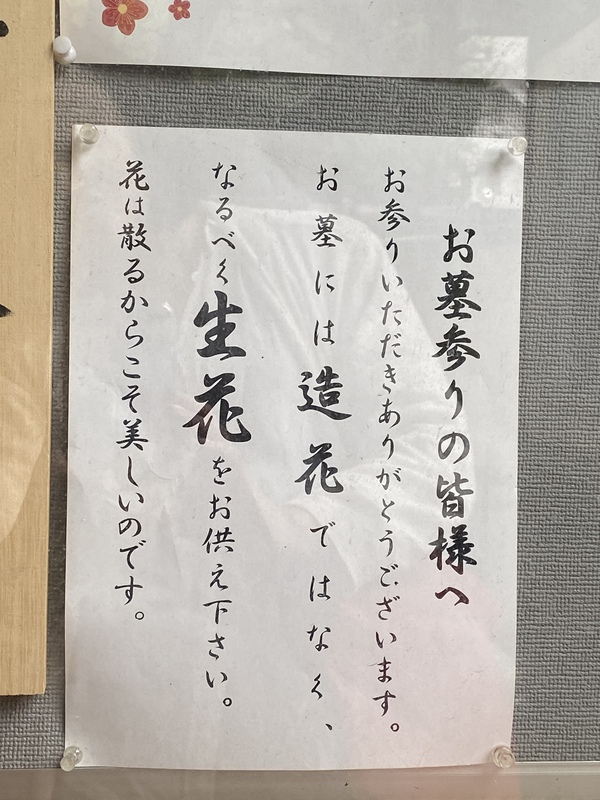 お墓参りの皆様へ
お参りいただきありがとうございます。
お墓には造花ではなく、
なるべく生花をお供え下さい。
花は散るからこそ美しいのです。